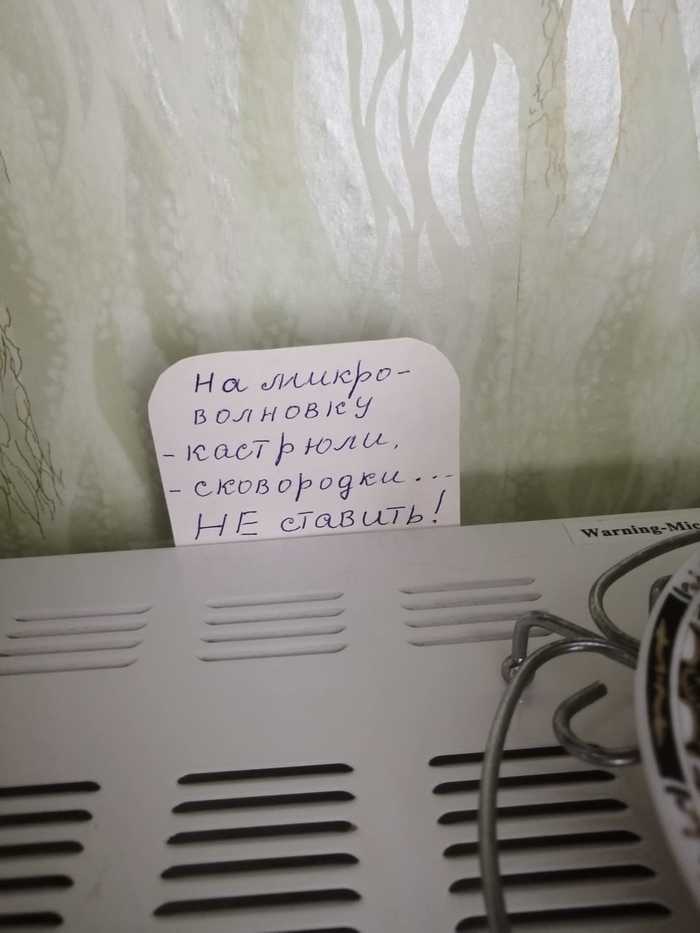 На микро-
волновку
- кастрюли,
- сковородки...
НЕ ставить!
Warning-Mic